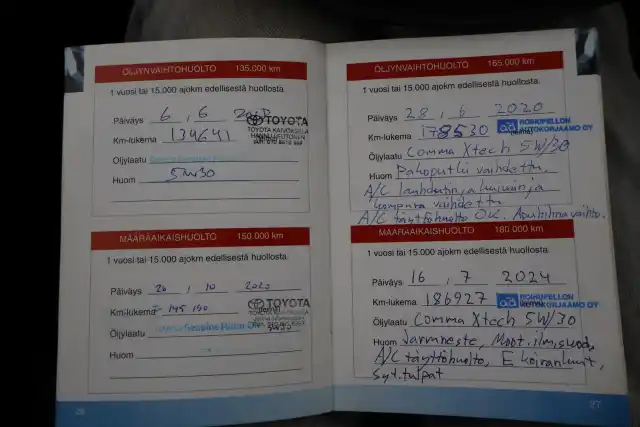 ÖLJYNVAIHTOHUOLTO 135.000 km
1 vuosi tai 15.000 ajokm edellisestä huollosta.
Päiväys 6 , 6
Km-lukema 134641
TOYOTA
TOYOTA KAIVOKSELA
Öljylaatu
Huom 5W30
MÄÄRÄAIKAISHUOLTO 150.000 km
1 vuosi tai 15.000 ajokm edellisestä huollosta.
Päiväys 20 , 10 2020
Km-lukema
TOYOTA
Öljylaatu
Huom
26
ÖLJYNVAIHTOHUOLTO 165.000 km
1 vuosi tai 15.000 ajokm edellisestä huollosta.
Päiväys 28 , 6 2020
Km-lukema 178530
ad ROIHUPELLON
AUTOKORJAAMO OY
Öljylaatu Comma Xtech 5W/30
Huom Pakoputki vaihdettu.
A/C lauhdutin, ja kuivain ja
kompura vaihdettu
A/C täyttöhuolto OK. Apuhihna vaihto.
MÄÄRÄAIKAISHUOLTO 180.000 km
1 vuosi tai 15.000 ajokm edellisestä huollosta.
Päiväys 16 , 7 2024
Km-lukema 186927
ad ROIHUPELLON
AUTOKORJAAMO OY
Öljylaatu Comma Xtech 5W/30
Huom Jarruneste, Moot.ilm.suod,
A/C täyttöhuolto, E koiranluut,
Syt.tulpat
27